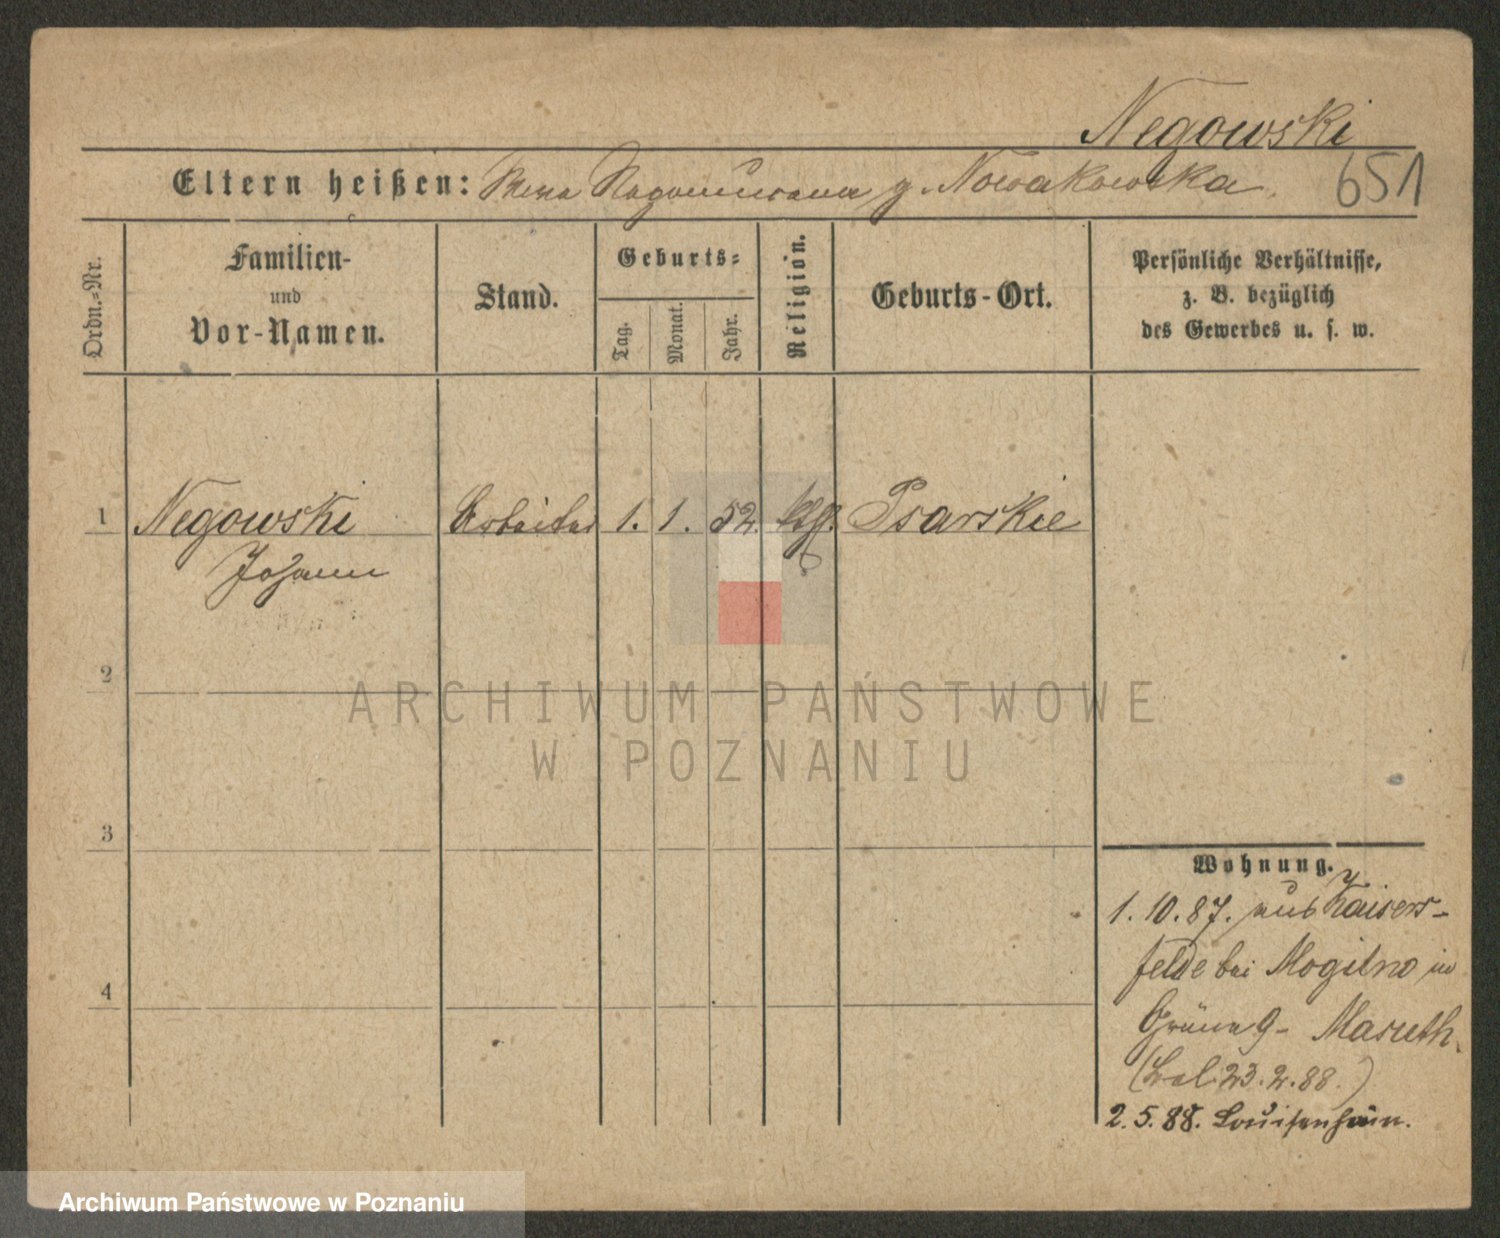 Negowski
Eltern heißen: g. Nowakowska
651
Ordn.-Nr.
Familien-
und
Vor-Namen.
Stand.
Geburts-
Tag.
Monat.
Jahr.
Religion.
Geburts-Ort.
Persönliche Verhältnisse,
z. B. bezüglich
des Gewerbes u. s. w.
1 Negowski Arbeiter 1. 1. 52. ktg. Psarskie
Johann
2
3
4
Wohnung.
1. 10. 87. aus Kaisers-
felde bei Mogilno in
9 - Masuth.
23. 2. 88.)
2. 5. 88. Louisenhain.
ARCHIWUM PAŃSTWOWE
W POZNANIU
Archiwum Państwowe w Poznaniu